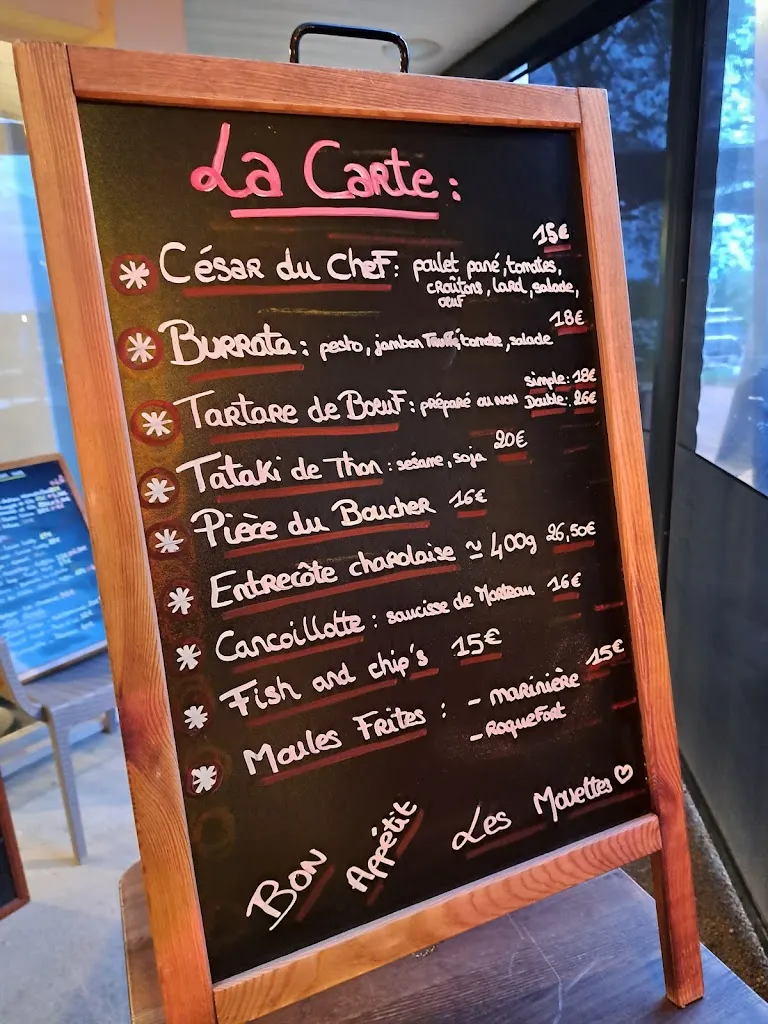 La Carte :
15€
César du Chef : poulet pané, tomates,
croûtons, lard, salade,
oeuf
18€
Burrata : pesto, jambon Truffé, tomate, salade
simple : 18€
Tartare de Boeuf : préparé ou non Double : 26€
Tataki de Thon : sésame, soja 20€
Pièce du Boucher 16€
Entrecôte charolaise ≃ 400g 26,50€
Cancoillotte : saucisse de Morteau 16€
Fish and chip's 15€
Moules Frites : - marinière 15€
- Roquefort
Bon Appétit Les Mouettes ♡